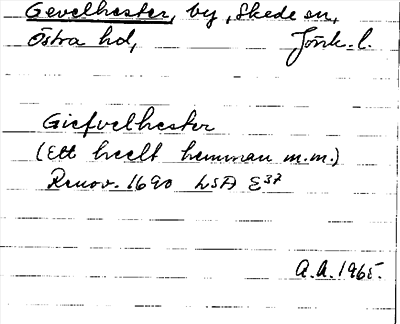 Gevelhester, by, Skede sn,
Östra hd, Jönk. l.
Giefvelhester
(Ett heelt hemman m.m.)
Renov. 1690 LSA E37
A.A. 1965.